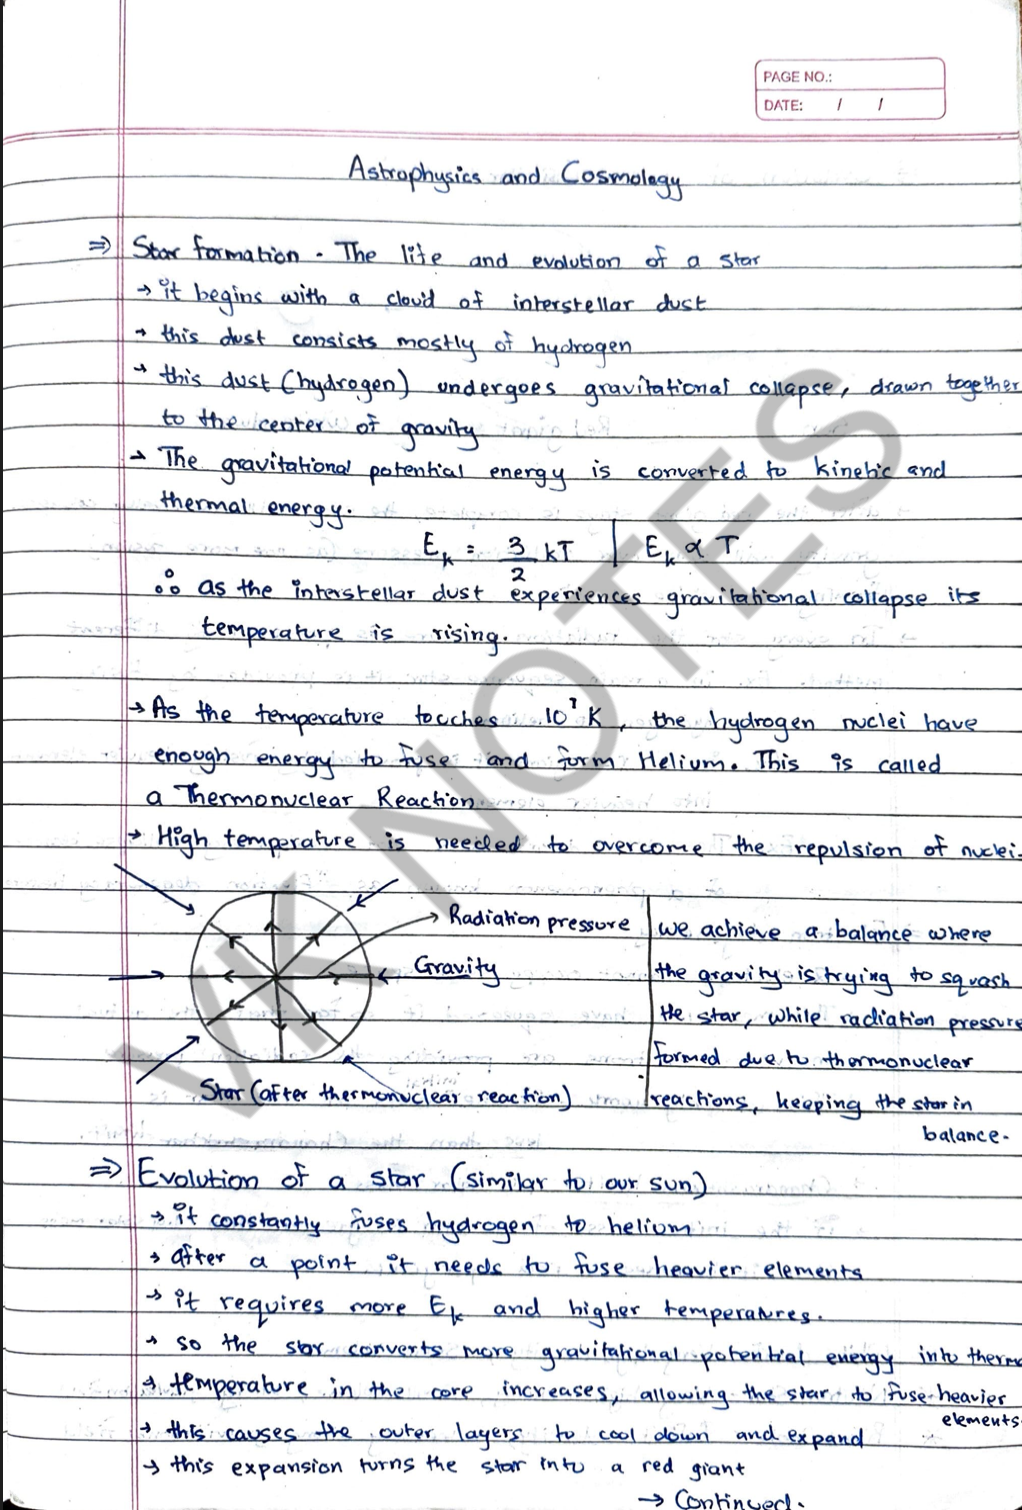 PAGE NO.:
DATE: / /
Astrophysics and Cosmology
⇒ Star formation - The life and evolution of a star
→ it begins with a cloud of interstellar dust
→ this dust consists mostly of hydrogen
→ this dust (hydrogen) undergoes gravitational collapse, drawn together
to the center of gravity
→ The gravitational potential energy is converted to kinetic and
thermal energy.
E_k = 3/2 kT | E_k ∝ T
∴ as the interstellar dust experiences gravitational collapse its
temperature is rising.
→ As the temperature touches 10⁷ K, the hydrogen nuclei have
enough energy to fuse and form Helium. This is called
a Thermonuclear Reaction
→ High temperature is needed to overcome the repulsion of nuclei.
→ Radiation pressure
Gravity
Star (after thermonuclear reaction)
we achieve a balance where
the gravity is trying to squash
the star, while radiation pressure
formed due to thermonuclear
reactions, keeping the star in
balance.
⇒ Evolution of a star (similar to our sun)
→ it constantly fuses hydrogen to helium
→ after a point it needs to fuse heavier elements
→ it requires more E_k and higher temperatures.
→ so the star converts more gravitational potential energy into therma
→ temperature in the core increases, allowing the star to fuse heavier
elements
→ this causes the outer layers to cool down and expand
→ this expansion turns the star into a red giant
→ Continued.
VK NOTES